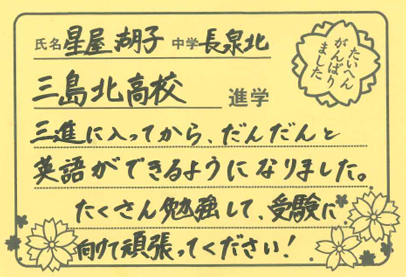 氏名 星屋 瑚子 中学 長泉北
たいへん
がんばり
ました
三島北高校 進学
三進に入ってから、だんだんと
英語ができるようになりました。
たくさん勉強して、受験に
向けて頑張ってください!